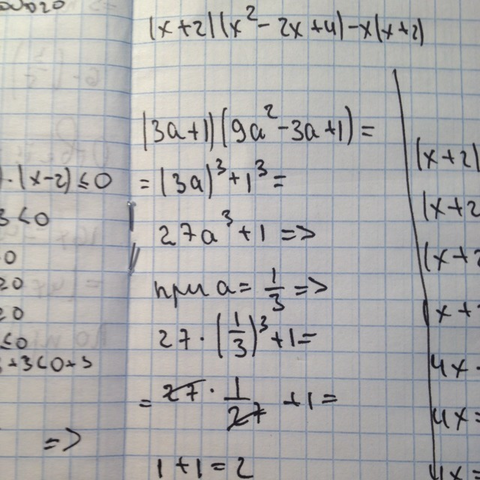 (x+2)(x²-2x+4)-x(x+2)
(3a+1)(9a²-3a+1)=
=(3a)³+1³=
27a³+1=>
при a=1/3=>
27·(1/3)³+1=
=27·1/27+1=
1+1=2
)·(x-2)≤0
3<0
0
≤0
+3<0+3
=>
(x+2)
(x+2
(x+2
(x+2
4x
4x=
4x=